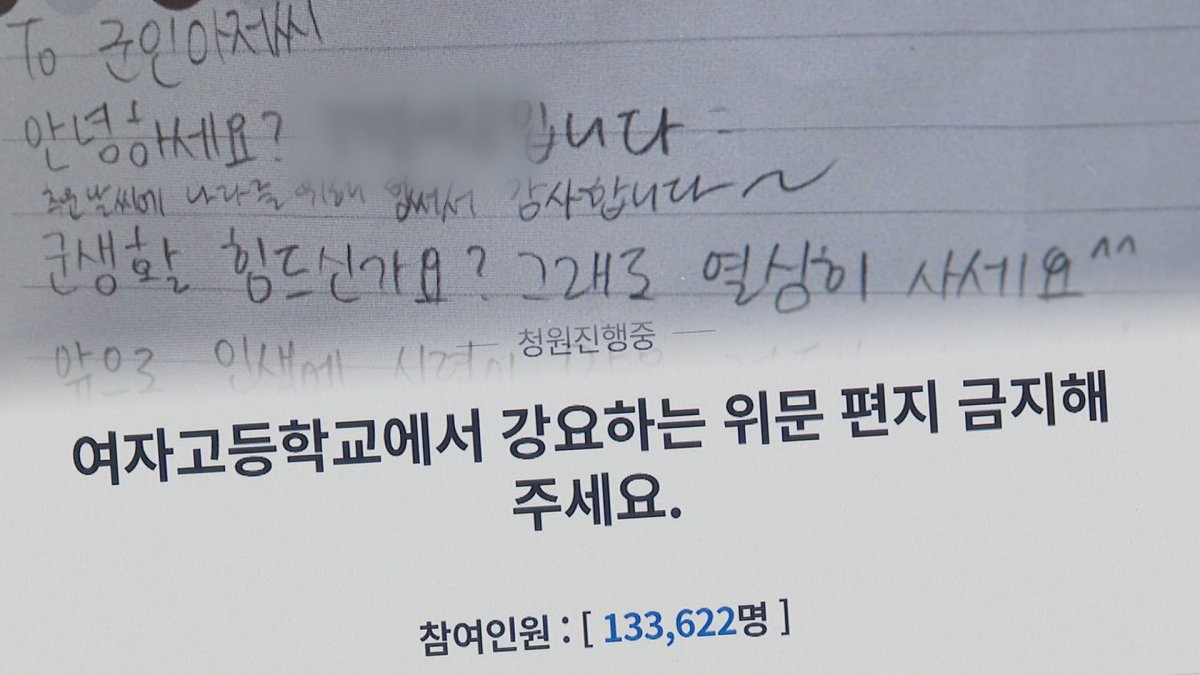 To 군인아저씨
안녕하세요? 입니다
추운날씨에 나라를 위해 힘써서 감사합니다~
군생활 힘드신가요? 그래도 열심히 사세요^^
앞으로 인생에 시련이
청원진행중
여자고등학교에서 강요하는 위문 편지 금지해
주세요.
참여인원 : [ 133,622명 ]